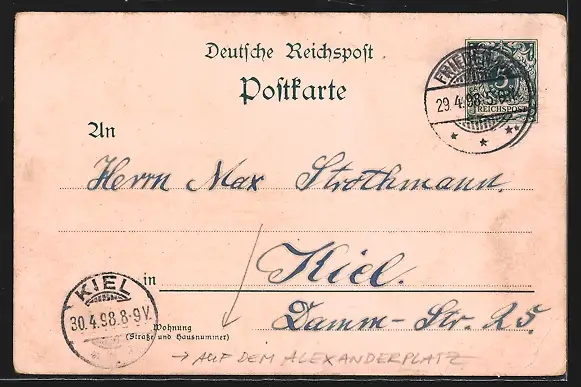 Deutsche Reichspost
Postkarte
5
REICHSPOST
29.4.98.5
An
Herrn Max Strothmann.
in Kiel.
KIEL
30.4.98.8-9V.
Wohnung
(Straße und Hausnummer)
Damm-Str. 25
→ AUF DEM ALEXANDERPLATZ